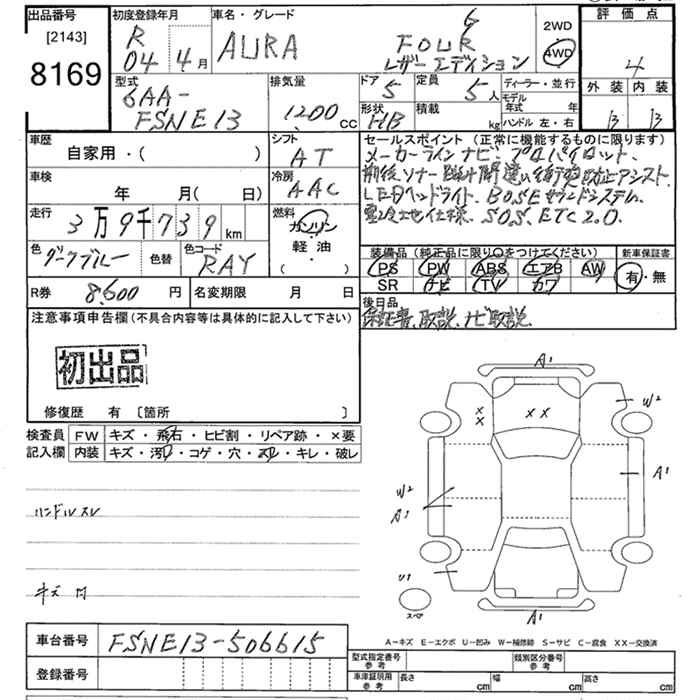 出品番号
[2143]
8169
初度登録年月
R
04 4月
車名・グレード
AURA
G
FOUR
レザーエディション
2WD
4WD
評価点
4
外装 内装
B B
型式
6AA-
FSNE13
排気量
1200cc
ドア
5
定員
5人
形状
HB
積載
kg
ディーラー・並行
モデル年式 年
ハンドル 左・右
車歴
自家用・( )
シフト
AT
車検
年 月( 日)
冷房
AAC
走行
3万9千739km
燃料
ガソリン
軽油
( )
色
ダークブルー
色替
色コード
RAY
セールスポイント (正常に機能するものに限ります)
メーカーラインナビ、プロパイロット、
前後ソナー 踏み間違い衝突防止アシスト
LEDヘッドライト、BOSEサウンドシステム、
寒冷地仕様、SOS、ETC2.0、
装備品(純正品に限り○をつけてください)
PS PW ABS エアB AW
SR ナビ TV カワ
新車保証書
有・無
R券 8,600円
名変期限 月 日
後日品
保証書、取説、ナビ取説
注意事項申告欄(不具合内容等は具体的に記入して下さい)
初出品
修復歴 有 〔箇所 〕
検査員
記入欄
FW キズ・飛石・ヒビ割・リペア跡・×要
内装 キズ・汚れ・コゲ・穴・スレ・キレ・破レ
ハンドルスレ
キズ 凹
A1
W2
××
××
A1
W2
A1
U1
スペア
A1
A－キズ E－エクボ U－凹み W－補修跡 S－サビ C－腐食 XX－交換済
車台番号 FSNE13-506615
登録番号
型式指定番号
参考
類別区分番号
参考
車庫証明用
参考
長さ cm
幅 cm
高さ cm